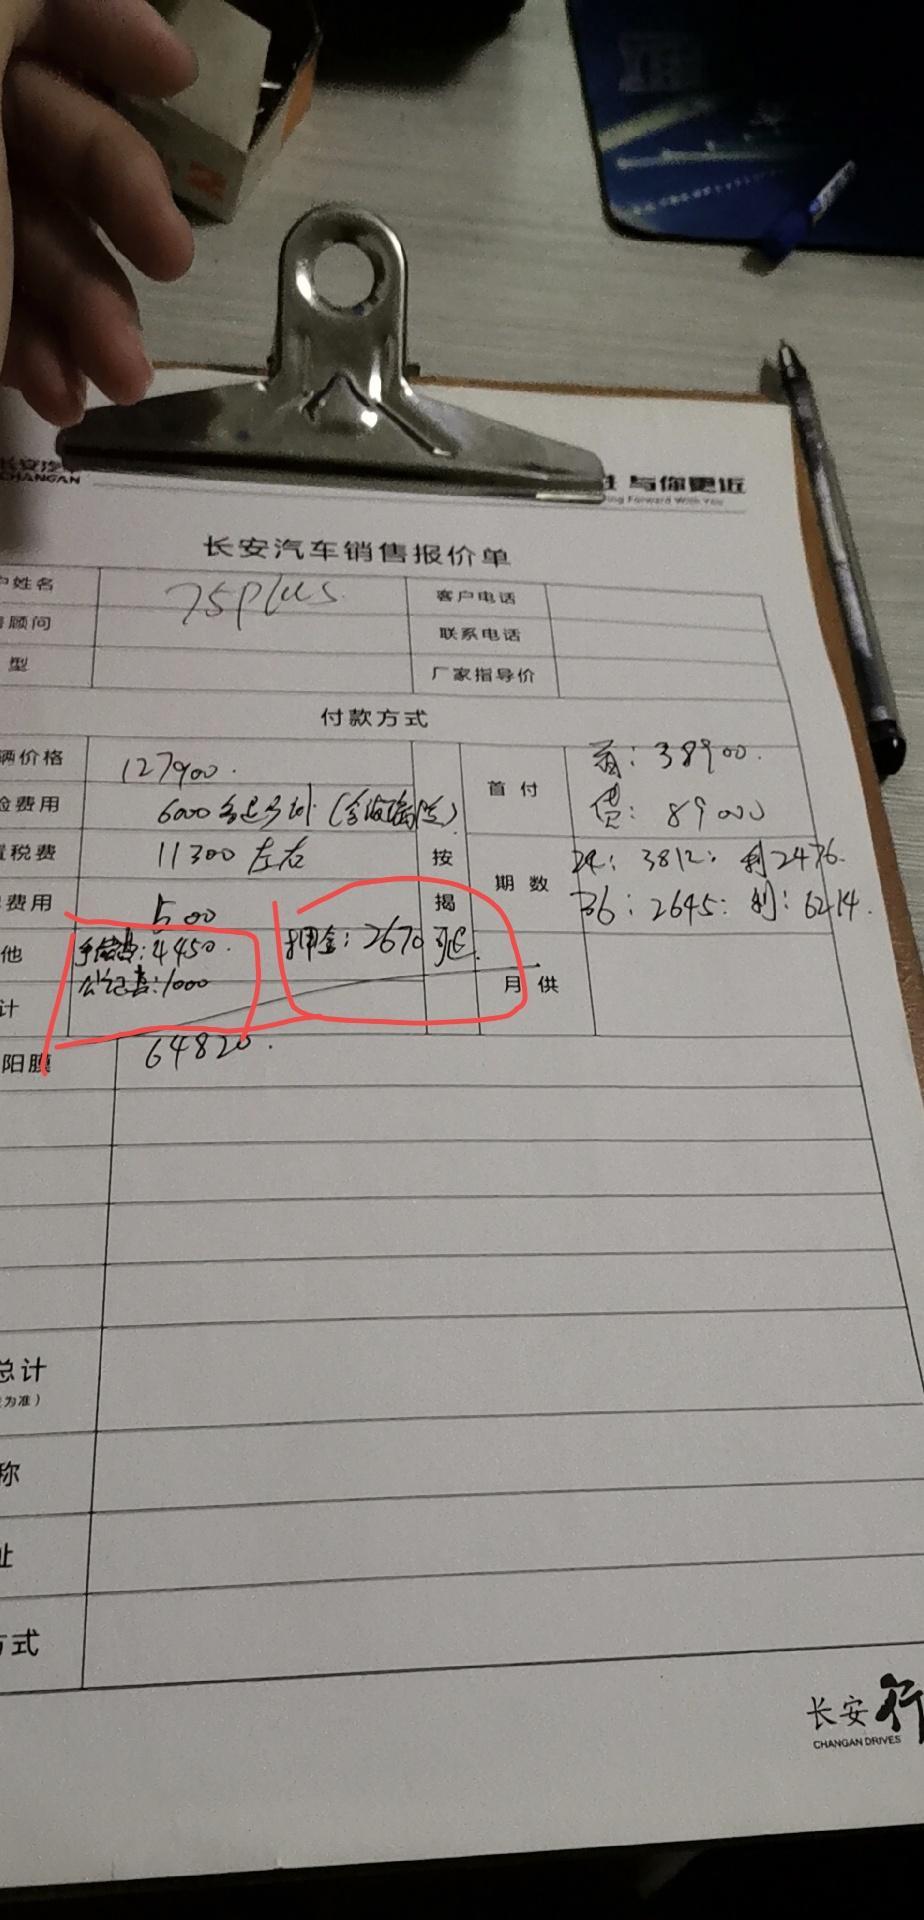 长安汽车
CHANGAN
与你更近
ing Forward With You
长安汽车销售报价单
户姓名
75plus
客户电话
顾问
联系电话
型
厂家指导价
付款方式
辆价格
127900.
首付
首: 38900.
费用
6000多退少补
费: 89000
置税费
11300左右
按揭
期数
24: 3812: 利2476.
36: 2645: 利: 6214.
费用
500
他
手续费: 4450.
公证费: 1000
押金: 2670 可退
月供
计
阳膜
64820.
总计
为准）
称
址
方式
长安行
CHANGAN DRIVES